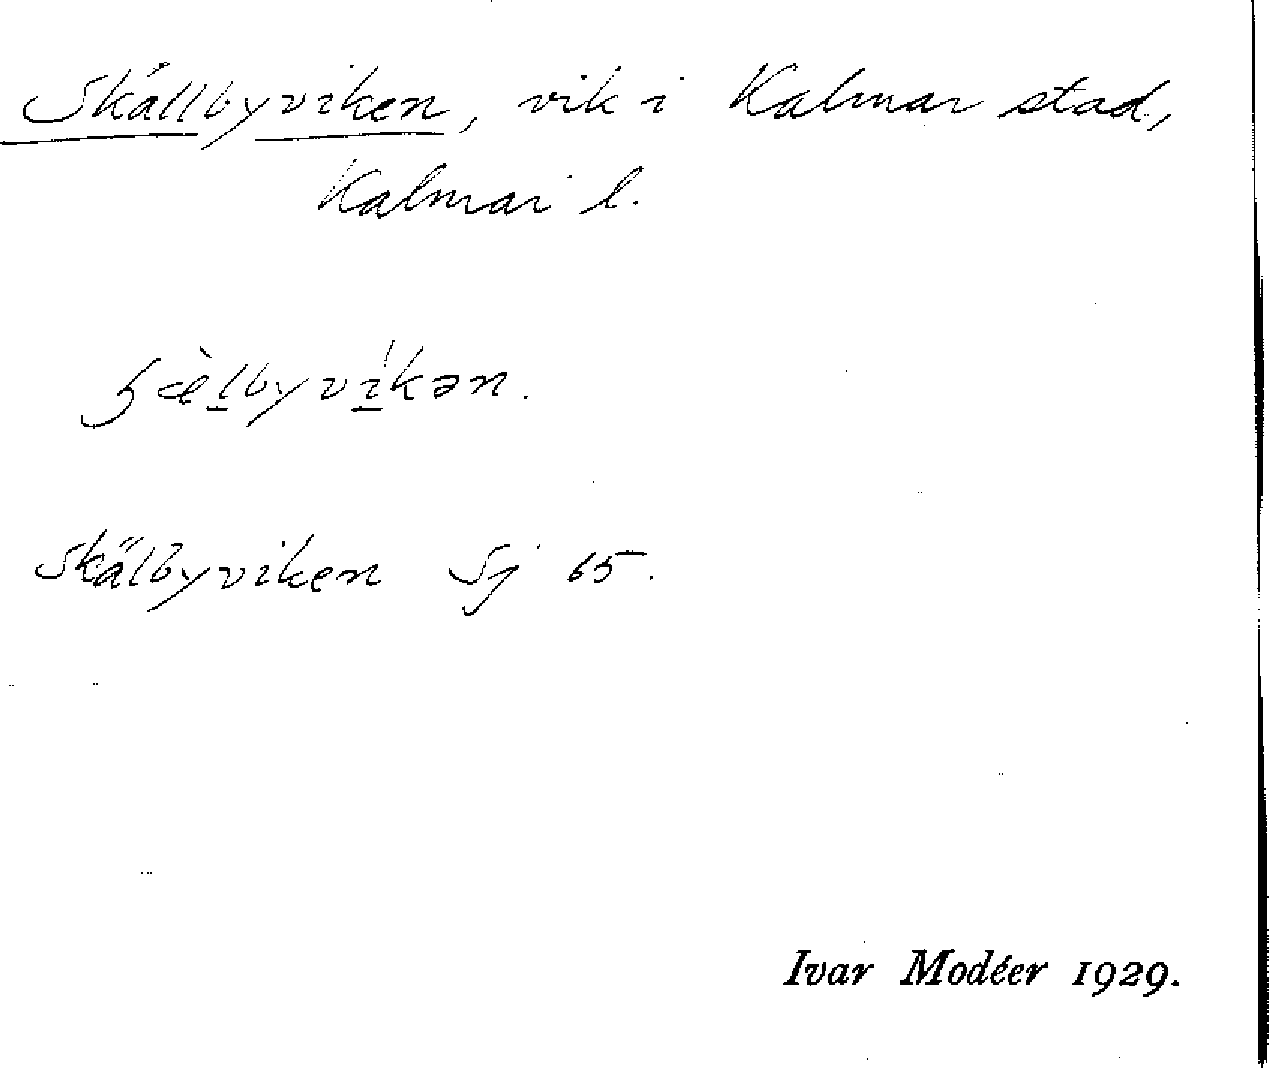 Skällbyviken, vik i Kalmar stad,
Kalmar l.
ʃæ̀l̲byví̲kən.
Skälbyviken Sj 65.
Ivar Modéer 1929.